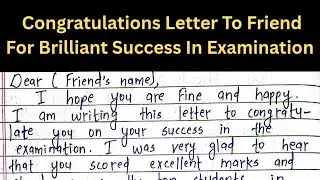 Congratulations Letter To Friend
For Brilliant Success In Examination
Dear (Friend's name),
I hope you are fine and happy.
I am writing this letter to congraty-
late you on your success in the
examination. I was very glad to hear
that you scored excellent marks and
students in